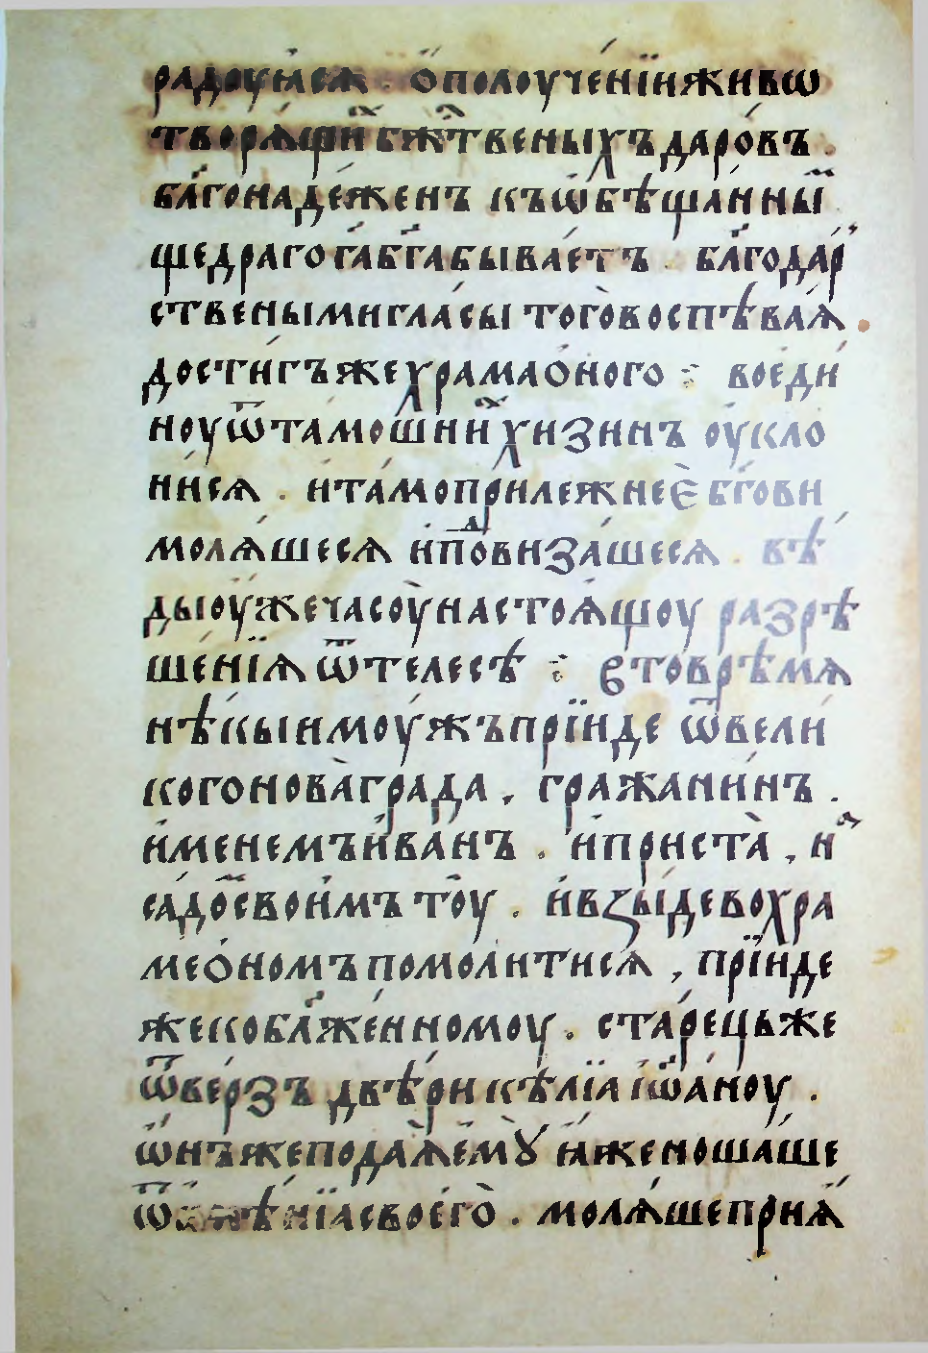 радоуѧсѧ . ѻ҆полоуче́нїиживѡ
творѧ́щи́хбж҃твеныхъдаро́въ .
бл҃гонаде́женъ къѡ҆бѣща́нны́
щедрагога҆бг҃абыва́етъ . бл҃года́р
ственымигла́сы того̀воспѣва́ѧ .
дости́гъжехрамаѻ́ного : воеди́
ноуѿта́мошни́хжизнъ оу҆кло
ни́сѧ . и҆та́мопри́лежнеѐ бг҃ови
молѧ́шесѧ и҆по́двиза́шесѧ . вѣ́
дыоу҆жечасоу̀настоѧ́щоу разрѣ
ше́нїѧ ѿтелесѣ : втоврѣ́мѧ
нѣ́кыимоу́жъпрїиде ѿвели́
когонова̀града , гражани́нъ .
и҆менемъи҆ва́нъ . и҆приста̀ , н
са́дѻ҆свои́мъ тоу . и҆вꙁы́девохра
меѻ́номъпомоли́тисѧ , прїиде
жекобл҃же́нномоу . ста́рецьже
ѿве́рзъ двѣ́ри кѣ́лїа і҆ѡа́ноу .
ѡ҆нъжеподаѧ̀е҆мꙋ̀ ꙗ҆́женоша́ше
ѿ и҆мѣ́нїасвоего̀ . молѧ́шеприѧ́